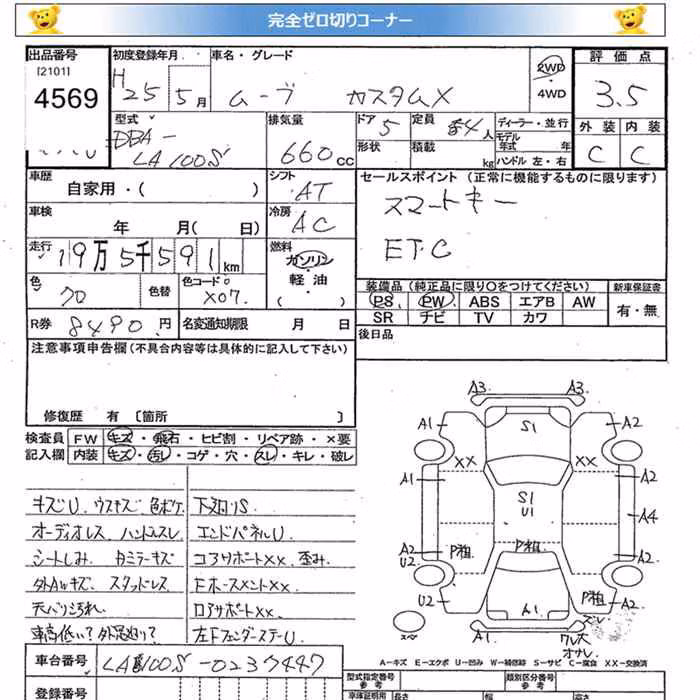 完全ゼロ切りコーナー
出品番号 初度登録年月 車名・グレード 評価点
[2101] H 2WD
4569 25 5月 ムーブ カスタムX ・4WD 3.5
型式 排気量 ドア 5 定員 4人 ディーラー・並行 外装 内装
DBA- 形状 積載 モデル年式 年 C C
LA100S 660cc kg ハンドル 左・右
車歴 シフト セールスポイント (正常に機能するものに限ります)
自家用・( ) AT スマートキー
車検 冷房
年 月( 日) AC ETC
走行 燃料
19万5千591km ガソリン
色 色替 色コード ・軽油 装備品(純正品に限り○をつけてください) 新車保証書
クロ X07 ( ) PS PW ABS エアB AW 有・無
R券 8490円 名変通知期限 月 日 SR ナビ TV カワ
注意事項申告欄(不具合内容等は具体的に記入して下さい) 後日品
修復歴 有 〔箇所 〕
検査員 FW キズ・飛石・ヒビ割・リペア跡・×要
記入欄 内装 キズ・汚し・コゲ・穴・スレ・キレ・破レ
A3 A3
A1 S1 A2
XX XX
A1 S1 A2
U1 A4
A2 P粗 P粗 A2
U2
U2 A1 P粗 A2
A1 スレ
ワレ大
オサレ
キズU ウスキズ 色ボケ 下廻りS
オーディオレス ハンドルスレ エンドパネルU
シートしみ ドアミラーキズ コアサポートXX 歪み
外AWキズ スタッドレス FホースメントXX
天バリ汚れ ロアサポートXX
車高低い? 左FフェンダーステーU
A-キズ E-エクボ U-凹み W-補修跡 S-サビ C-腐食 XX-交換済
車台番号 LA100S-0237447 型式指定番号 参考 類別区分番号 参考
登録番号 車体証明用 長さ 幅 高さ